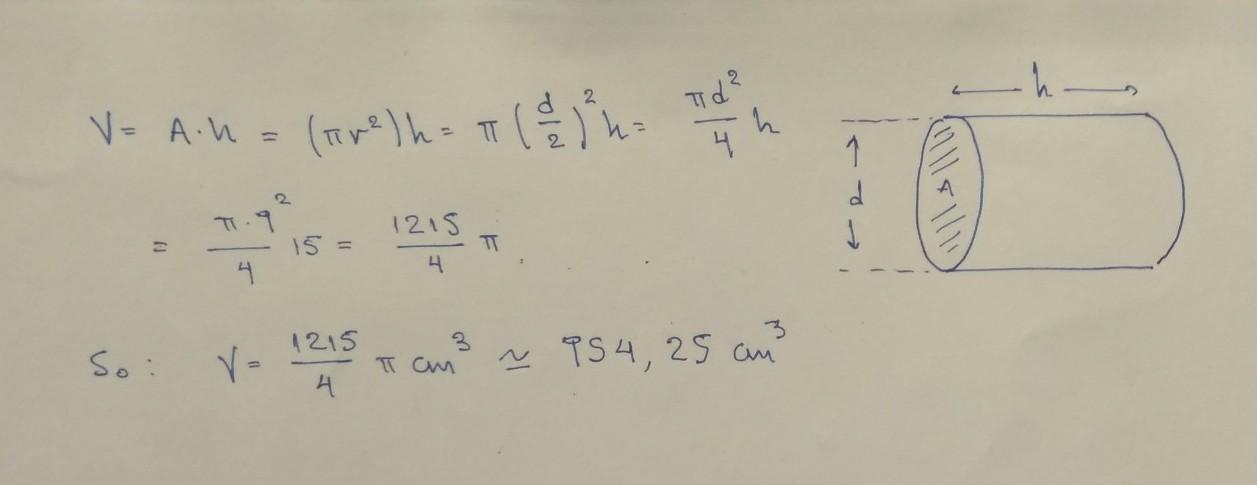 V = A·h = (πr²)h = π(d/2)²h = πd²/4 h
= π·9²/4 15 = 1215/4 π.
So: V = 1215/4 π cm³ ≃ 954,25 cm³
h
d
A